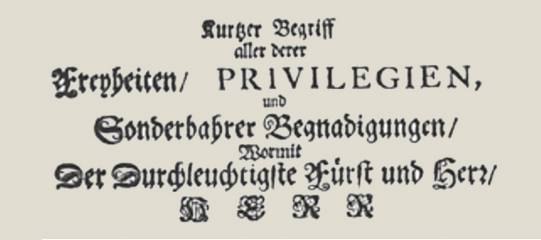 Kurtzer Begriff
aller derer
Freyheiten/ PRIVILEGIEN,
und
Sonderbahrer Begnadigungen/
Wormit
Der Durchleuchtigste Fürst und Herr/
H E R R